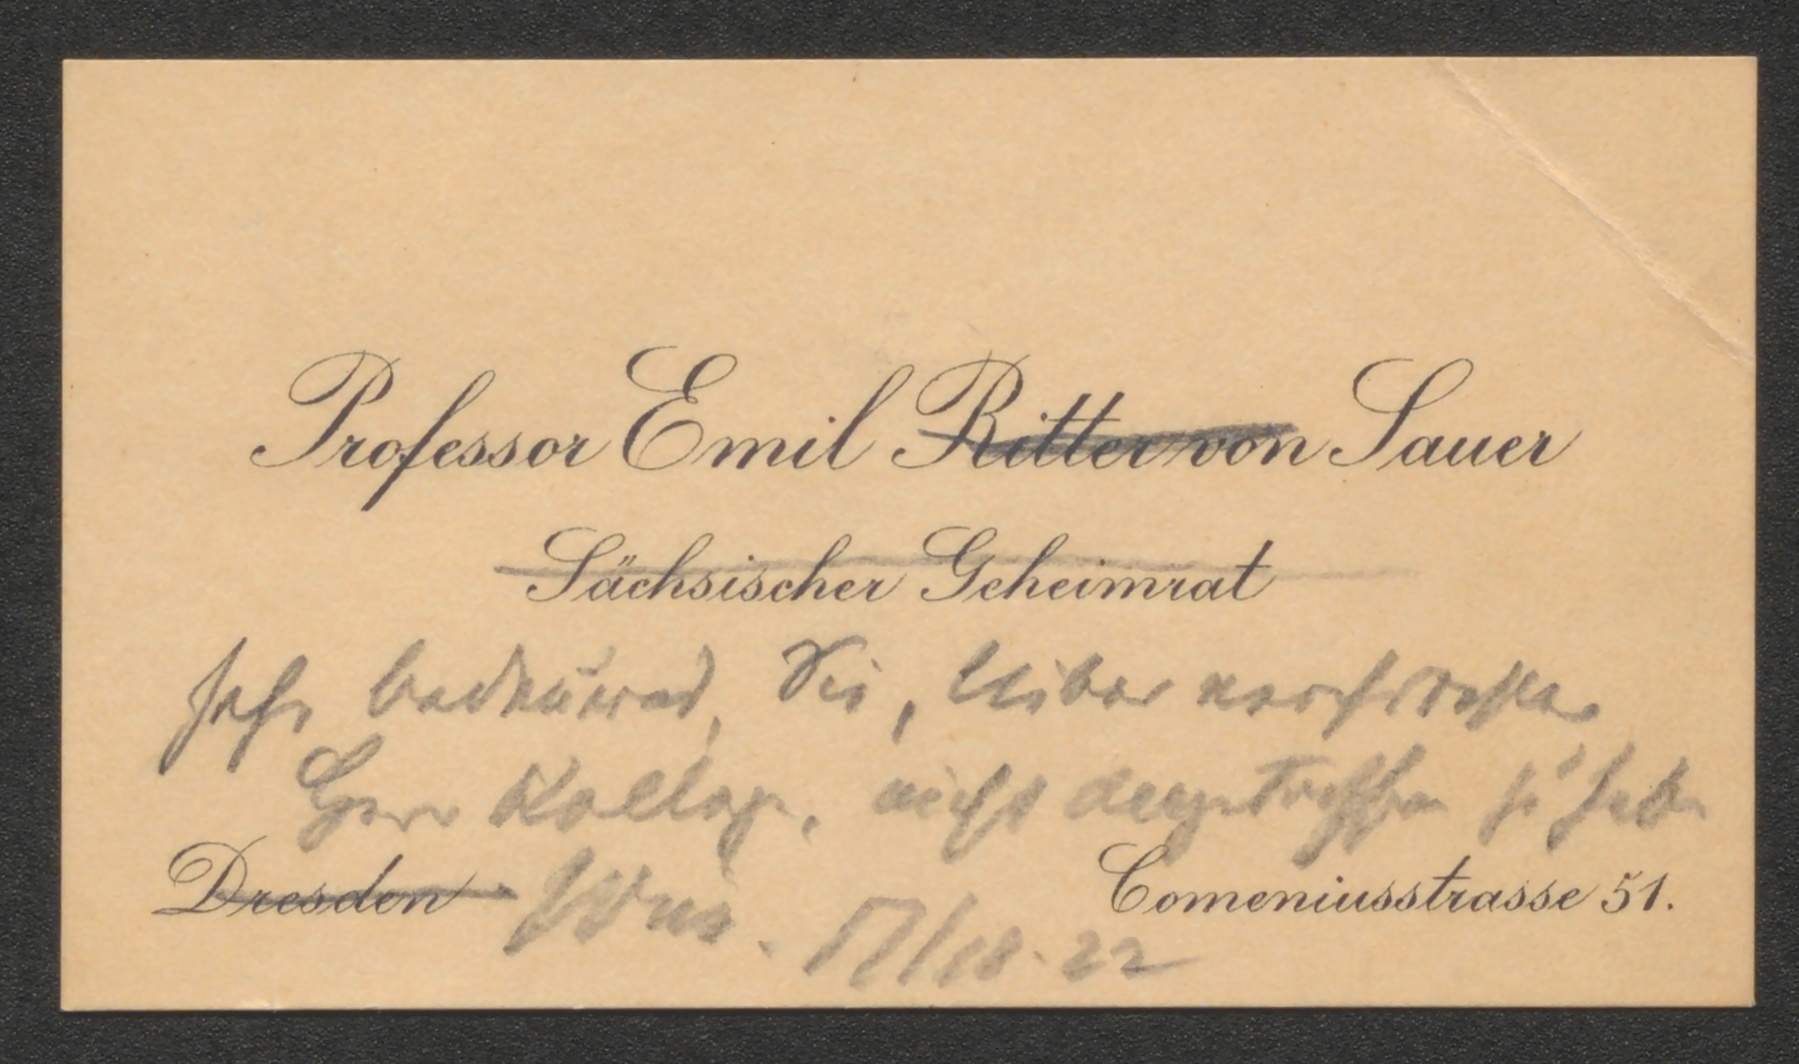 Professor Emil Ritter von Sauer
Sächsischer Geheimrat
Sehr bedauernd, Sie, lieber verehrter
Herr Kollege, nicht angetroffen zu haben
Dresden Wien. Comeniusstrasse 51.
22